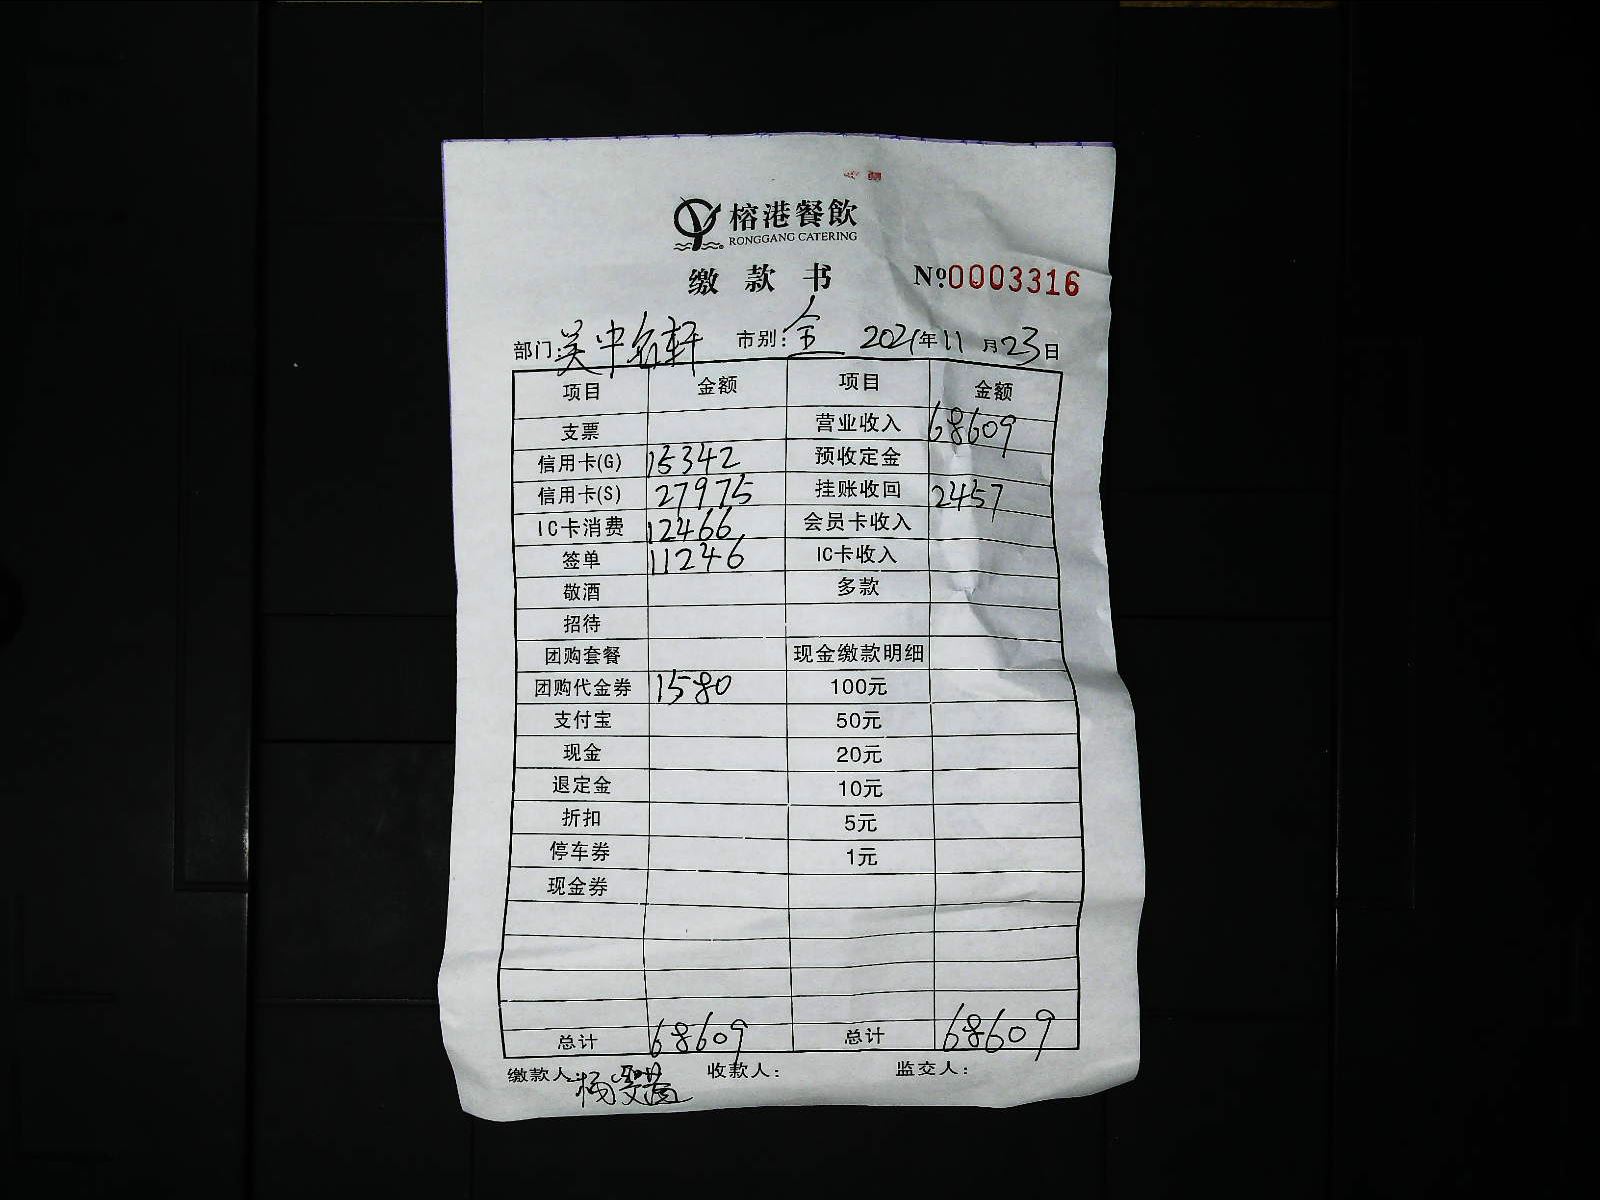 榕港餐飲
RONGGANG CATERING
缴款书 №0003316
部门:吴中名轩 市别:全 2021年11月23日
项目 金额 项目 金额
支票 营业收入 68609
信用卡(G) 15342 预收定金
信用卡(S) 27975 挂账收回 2457
IC卡消费 12466 会员卡收入
签单 11246 IC卡收入
敬酒 多款
招待
团购套餐 现金缴款明细
团购代金券 1580 100元
支付宝 50元
现金 20元
退定金 10元
折扣 5元
停车券 1元
现金券
总计 68609 总计 68609
缴款人: 杨 收款人: 监交人: